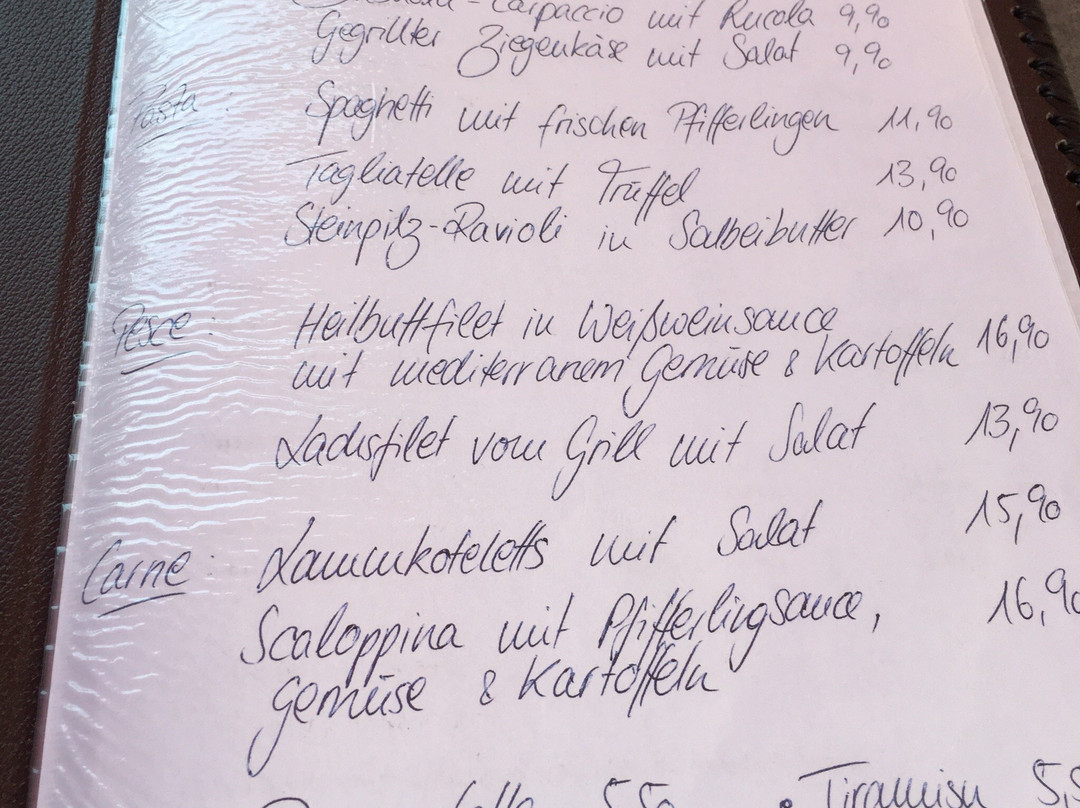 Carpaccio mit Rucola 9,90
Gegrillter Ziegenkäse mit Salat 9,90
Pasta: Spaghetti mit frischen Pfifferlingen 11,90
Tagliatelle mit Trüffel 13,90
Steinpilz-Ravioli in Salbeibutter 10,90
Pesce: Heilbuttfilet in Weißweinsauce
mit mediterranem Gemüse & Kartoffeln 16,90
Lachsfilet vom Grill mit Salat 13,90
Carne: Lammkoteletts mit Salat 15,90
Scaloppina mit Pfifferlingsauce, 16,90
Gemüse & Kartoffeln
5,50 • Tiramisu 5,5